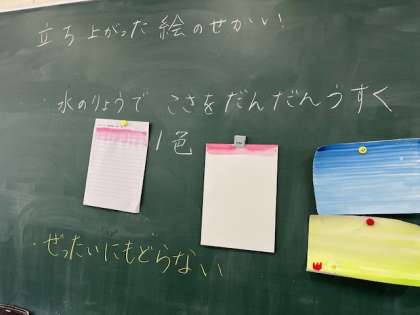 立ち上がった絵のせかい!
・水のりょうで こさをだんだんうすく
1色
・ぜったいにもどらない